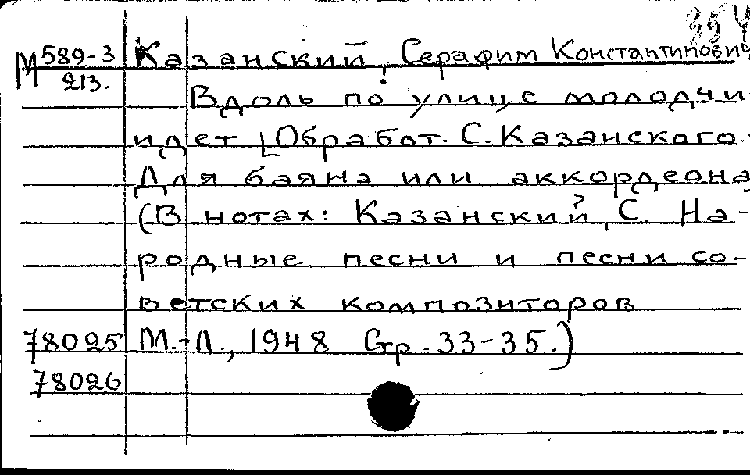 354
М 589-3 Казанский, Серафим Константинович
213.
Вдоль по улице молодчик
идет [Обработ. С. Казанского.
Для баяна или аккордеона
(В нотах: Казанский, С. На-
родные песни и песни со-
ветских композиторов
78025 М.-Л., 1948 Стр. 33-35.)
78026